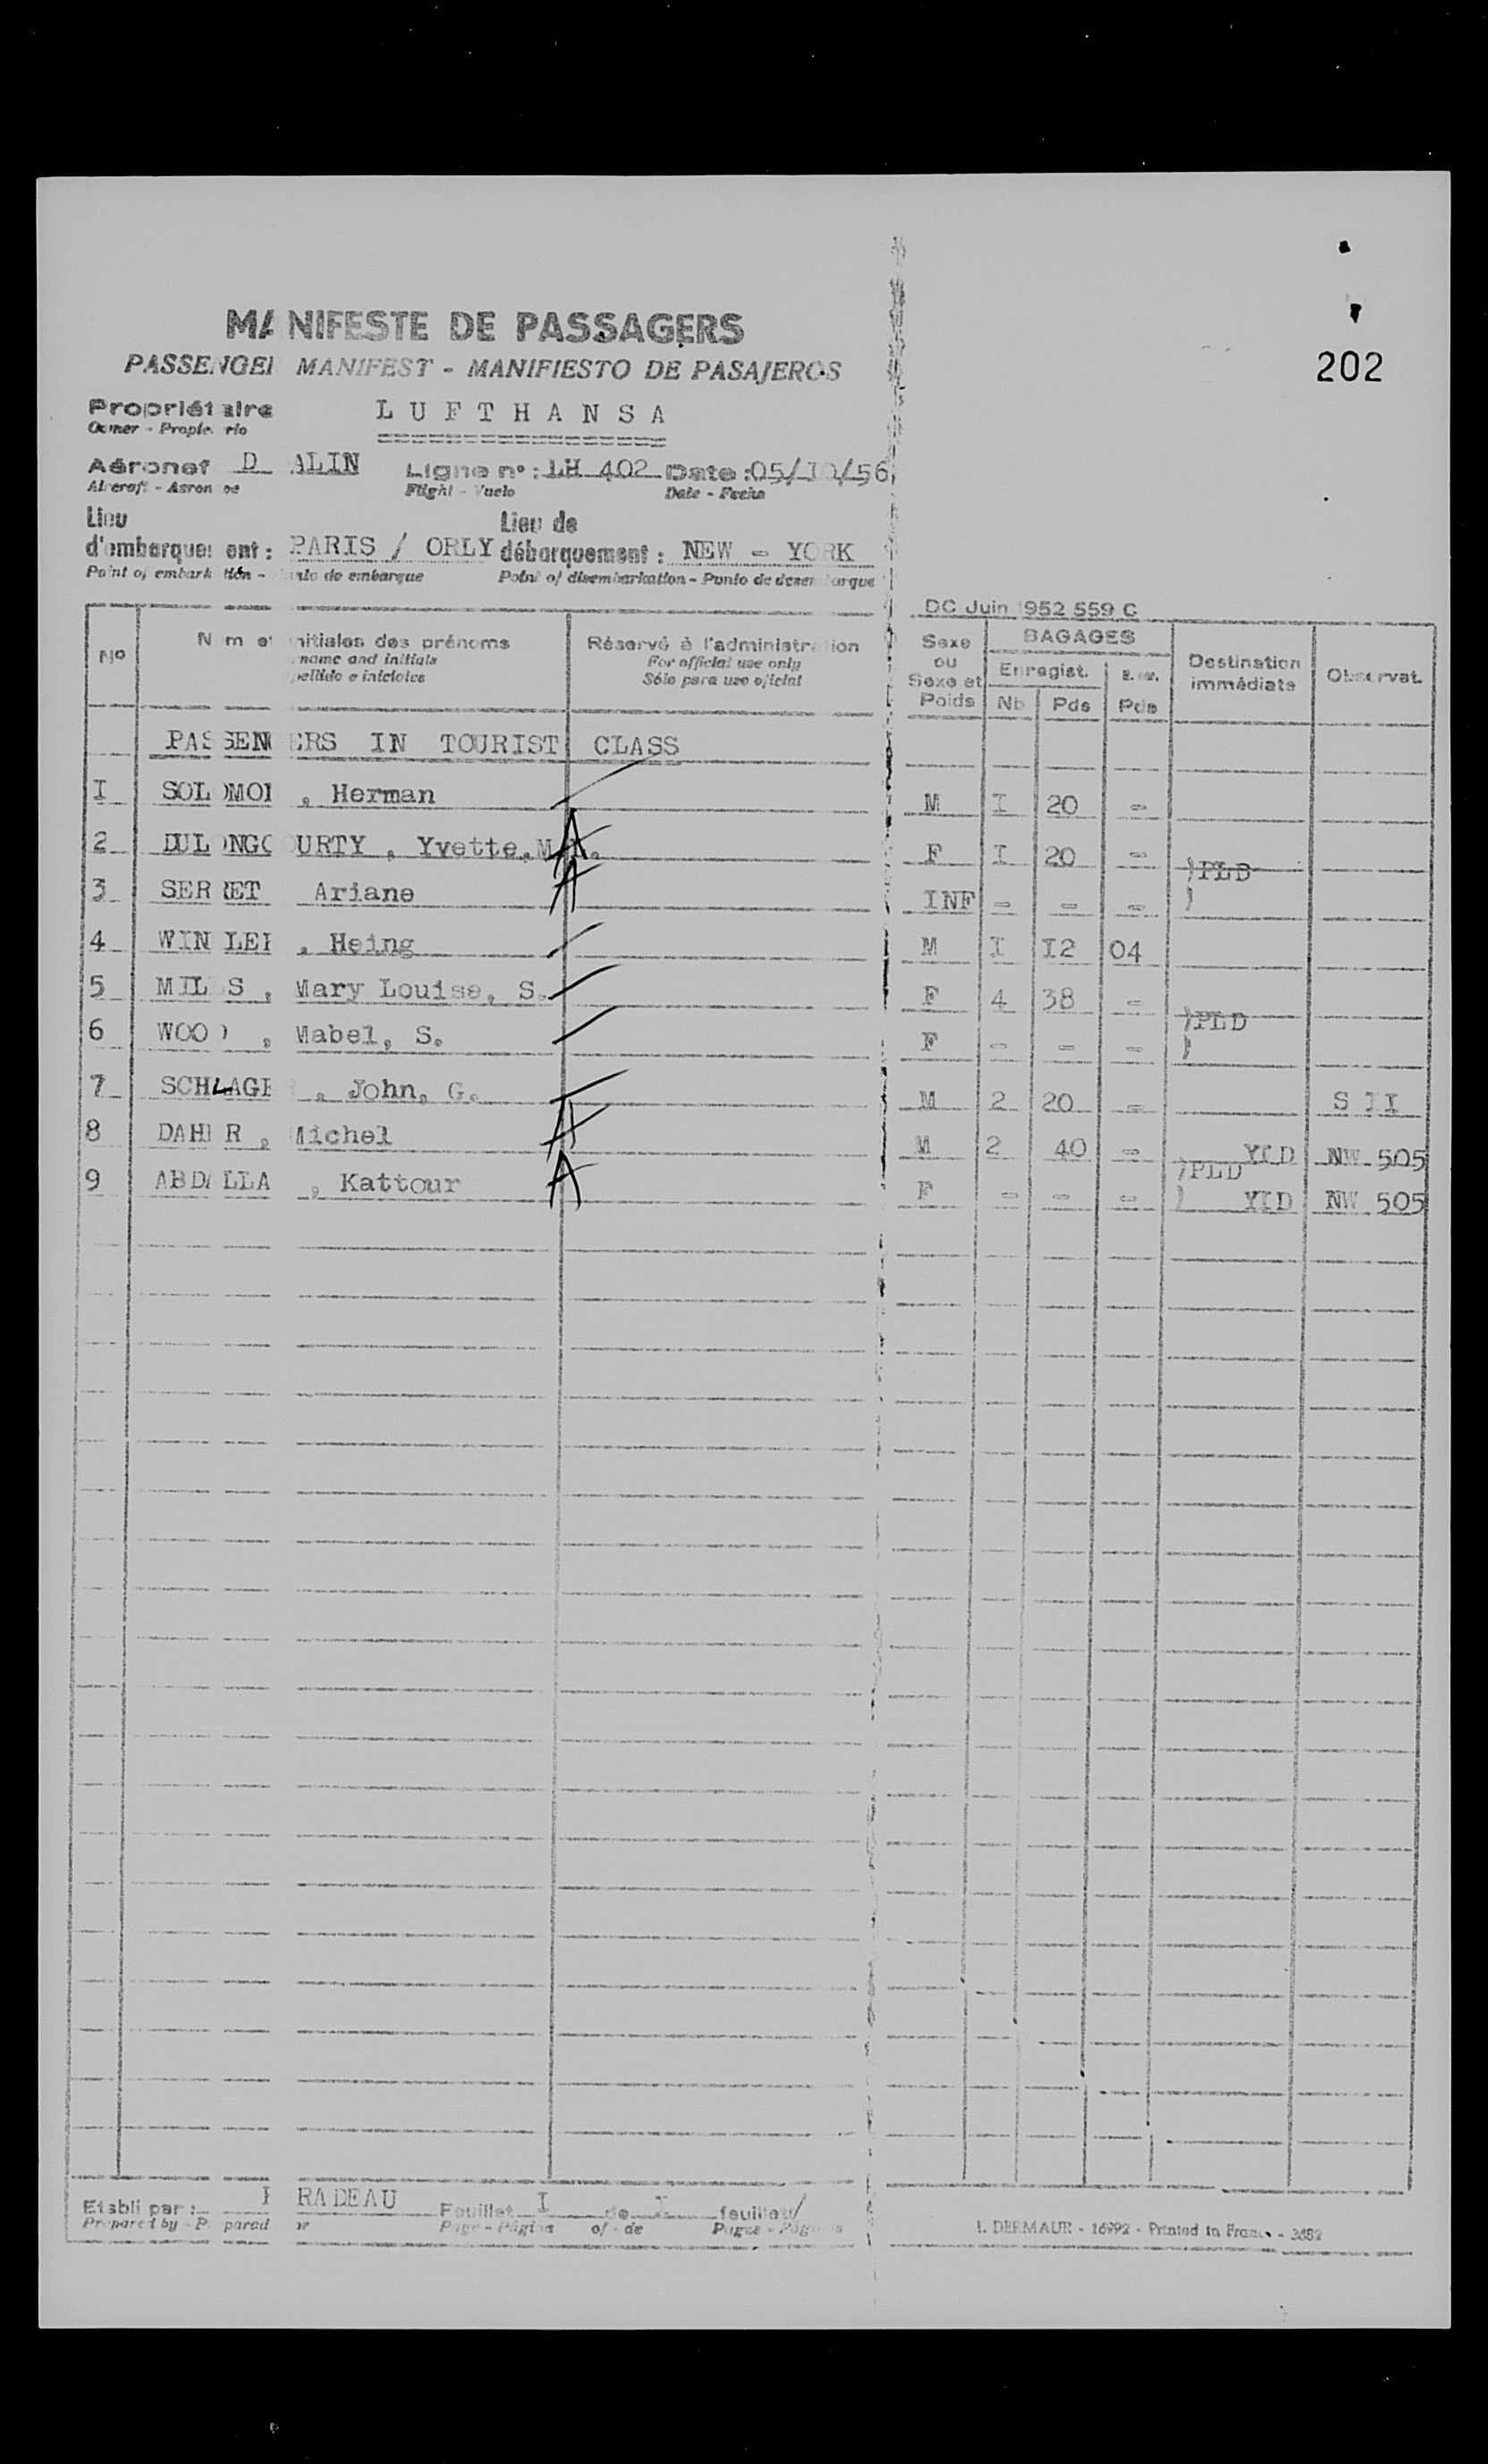 202
MANIFESTE DE PASSAGERS
PASSENGER MANIFEST - MANIFIESTO DE PASAJEROS
Propriétaire LUFTHANSA
Owner - Propietario
Aéronef D ALIN Ligne n°: LH 402 Date : 05/10/56
Aircraft - Aeronave Flight - Vuelo Date - Fecha
Lieu d'embarquement : PARIS / ORLY Lieu de débarquement : NEW - YORK
Point of embarkation - Punto de embarque Point of disembarkation - Punto de desembarque
DC Juin 1952 559 C
N° Nom et initiales des prénoms Réservé à l'administration Sexe ou Sexe et Poids BAGAGES Destination immédiate Observat.
name and initials For official use only Enregist.
apellido e iniciales Sólo para uso oficial Nb Pds Pds
PASSENGERS IN TOURIST CLASS
I SOLOMON , Herman M I 20 -
2 DULONGCOURTY , Yvette, M. A F I 20 - )PLD
3 SERRET Ariane A INF - - - )
4 WINKLER , Heing M I I2 04
5 MILLS , Mary Louise, S. F 4 38 - )PLD
6 WOOD , Mabel, S. F - - - )
7 SCHLAGER , John, G. M 2 20 - S I I
8 DAHER , Michel A M 2 40 - YLD NW 505
)PLD
9 ABDALLA , Kattour A F - - - ) YLD NW 505
Etabli par : RADEAU Feuillet I de I feuillets
Prepared by - Preparado por Page - Página of - de Pages - Páginas
I. DERMAUR - 16992 - Printed in France - 3682